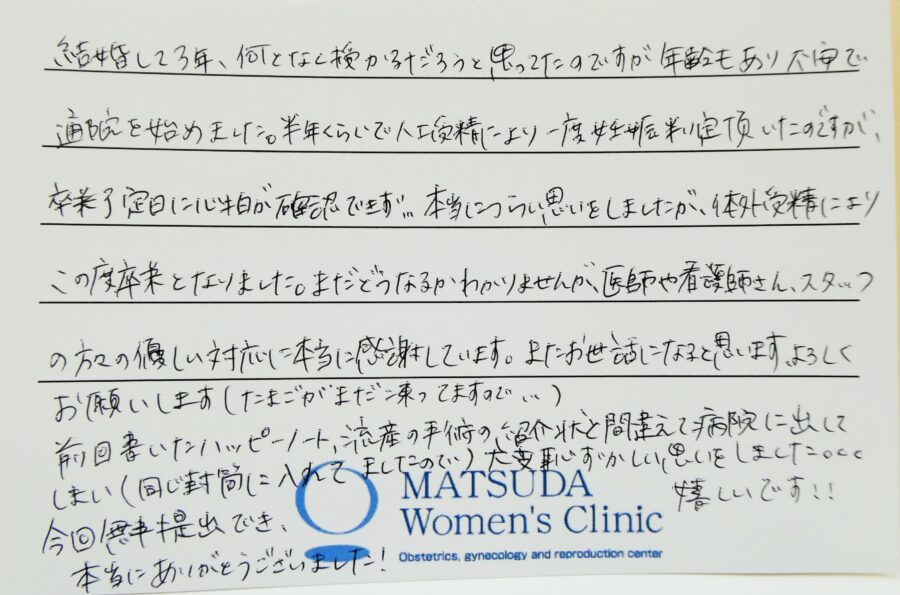 結婚して3年、何となく授かるだろうと思ってたのですが年齢もあり不安で
通院を始めました。半年くらいで人工受精により一度妊娠判定頂いたのですが、
卒業予定日に心拍が確認できず… 本当につらい思いをしましたが、体外受精により
この度卒業となりました。まだどうなるかわかりませんが、医師や看護師さん、スタッフ
の方々の優しい対応に本当に感謝しています。またお世話になると思います、よろしく
お願いします(たまごがまだ凍ってますので…)
前回書いたハッピーノート、流産の手術の、紹介状と間違えて病院に出して
しまい(同じ封筒に入れてましたので)大変恥ずかしい思いをしました。。。
今回無事提出でき、嬉しいです!!
本当にありがとうございました!
MATSUDA
Women's Clinic
Obstetrics, gynecology and reproduction center